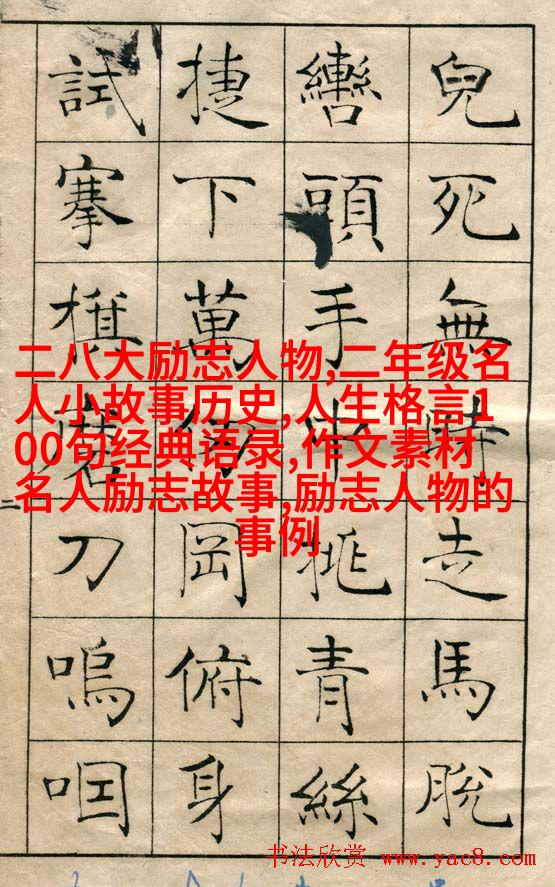 兒死無時走馬脫
轡頭手中挑青絲
捷下萬仞岡俯身
試搴旗磨刀嗚咽
二八大励志人物,二年级名
人小故事历史,人生格言1
00句经典语录,作文素材
名人励志故事,励志人物的
事例
书法欣赏 www.yac8.com